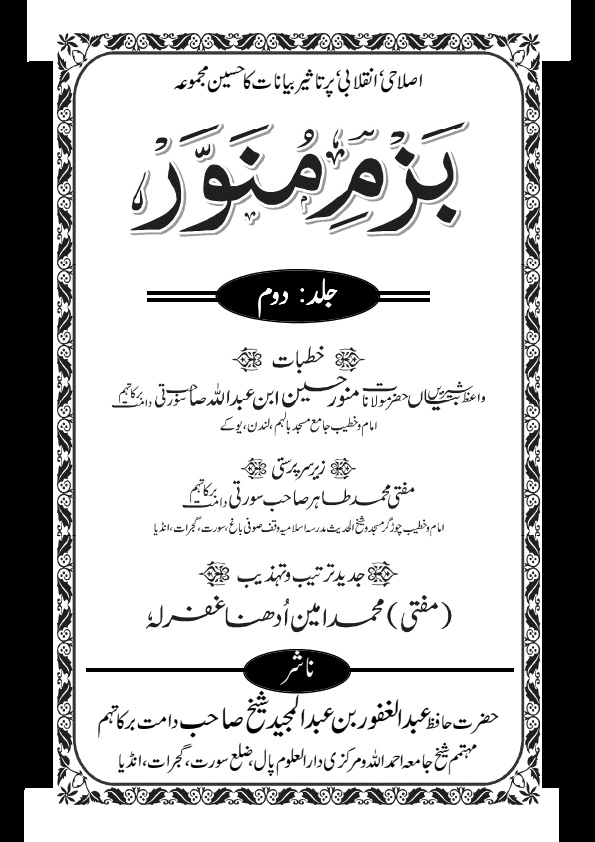 اصلاحی، انقلابی، پر تاثیر بیانات کا حسین مجموعہ
بَزْمِ مُنَوَّرْ
جلد: دوم
خطبات
واعظ شیریں بیاں حضرت مولانا منور حسین ابن عبداللہ صاحب سورتی دامت برکاتہم
امام و خطیب جامع مسجد بالہم، لندن، یو کے
زیر سرپرستی
مفتی محمد طاہر صاحب سورتی دامت برکاتہم
امام و خطیب چوڑگر مسجد و شیخ الحدیث مدرسہ اسلامیہ وقف صوفی باغ، سورت، گجرات، انڈیا
جدید ترتیب و تہذیب
(مفتی) محمد امین اُدھنا غفرلہٗ
ناشر
حضرت حافظ عبدالغفور بن عبدالمجید شیخ صاحب دامت برکاتہم
مہتمم شیخ جامعہ احمد اللہ و مرکزی دارالعلوم پال، ضلع سورت، گجرات، انڈیا